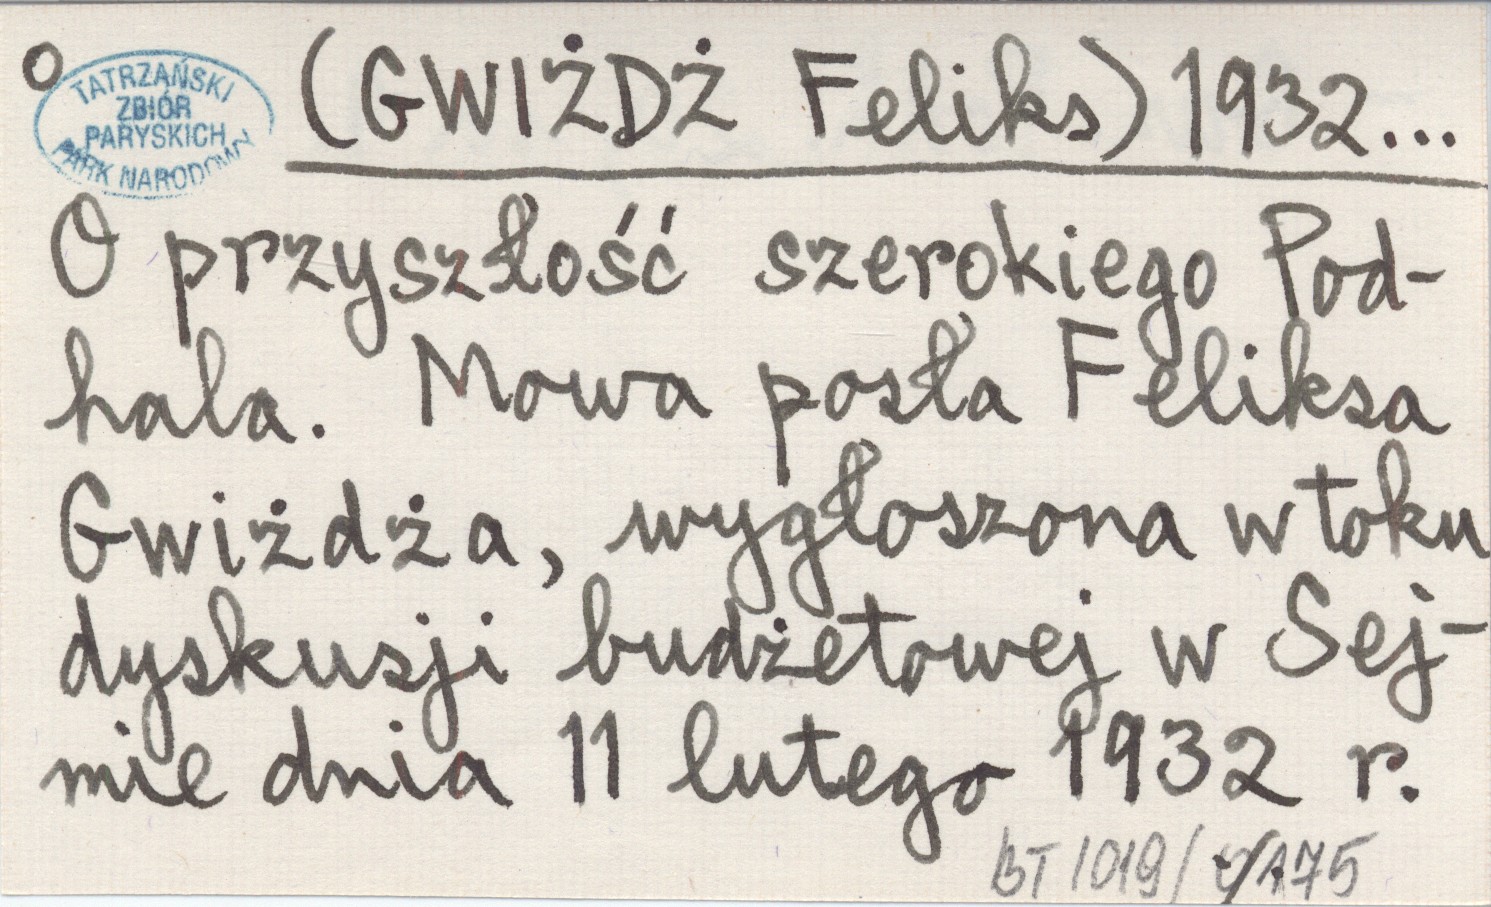 O
TATRZAŃSKI
ZBIÓR
PARYSKICH
PARK NARODOWY
(GWIŻDŻ Feliks) 1932...
O przyszłość szerokiego Pod-
hala. Mowa posła Feliksa
Gwiżdża, wygłoszona w toku
dyskusji budżetowej w Sej-
mie dnia 11 lutego 1932 r.
BT 1019/